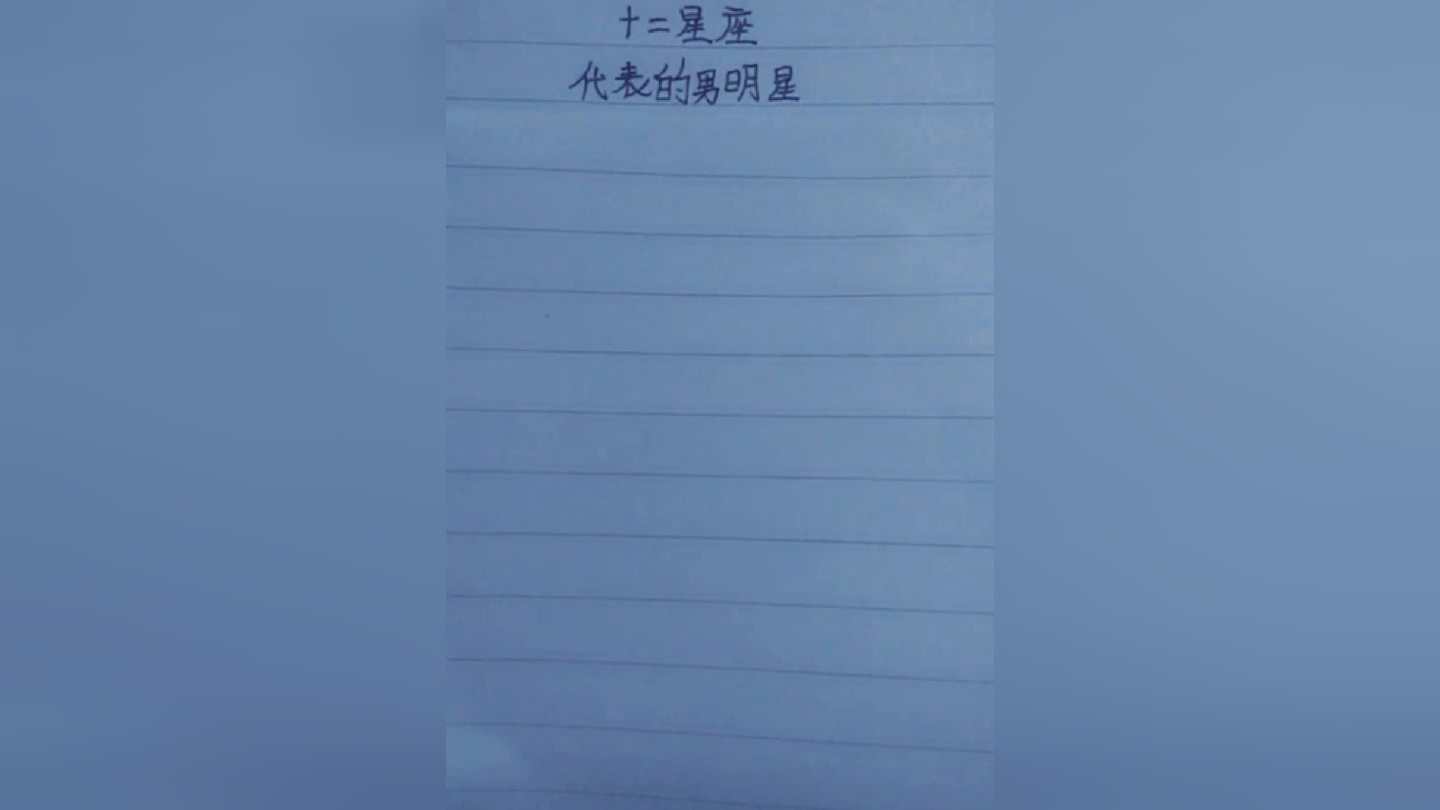 十二星座
代表的男明星